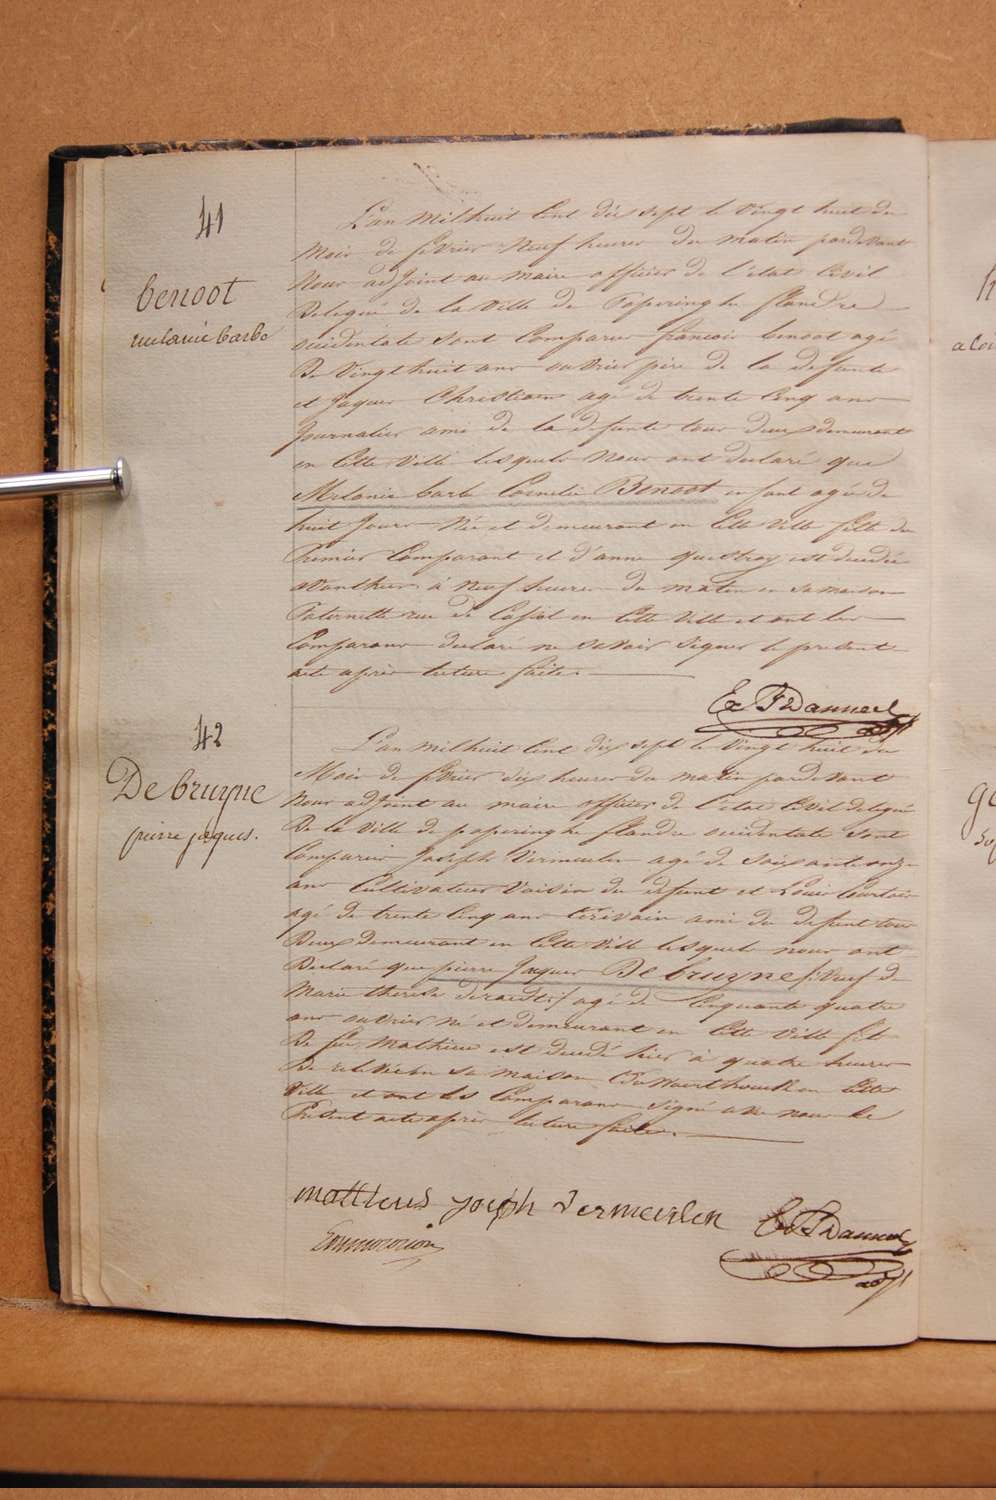 41
benoot
melanie barbe
L'an mil huit cent dix sept le vingt huit du
mois de fevrier neuf heures du matin pardevant
Nous adjoint au maire officier de l'etat Civil
Delegué de la ville de Poperinghe flandre
occidentale sont Comparus francois benoot agé
De vingt huit ans ouvrier pere de la defunte
et Jaques Christiaen agé de trente Cinq ans
Journalier ami de la defunte tous deux demeurant
en Cette ville lesquels Nous ont declaré que
Melanie barbe Cornelie Benoot enfant agée de
huit Jours Née et demeurant en Cette ville fille du
Premier Comparant et d'anne questroy est decedée
avanthier à Neuf heures du matin en sa maison
Paternelle rue de Cassel en Cette Ville et ont les
Comparans declaré ne savoir signer le present
acte après lecture faite.
42
De bruyne
pierre jaques.
L'an mil huit Cent dix sept le vingt huit du
Mois de fevrier dix heures du matin pardevant
Nous adjoint au maire officier de l'etat Civil delegué
De la ville de poperinghe flandre occidentale sont
Comparus Joseph Vermeulen agé de soixante onze
ans Cultivateur Voisin du defunt et Louis Courtois
agé de trente Cinq ans Ecrivain ami du defunt tous
Deux demeurant en Cette ville lesquels nous ont
Declaré que pierre Jaques De bruyne veuf de
Marie therese agé de Cinquante quatre
ans ouvrier né et demeurant en Cette Ville fils
De feu Mathieu est decedé hier à quatre heures
De relevée en sa maison en Cette
Ville et ont les Comparans signé avec nous le
Present acte après lecture faite.
mattheus joseph Vermeulen